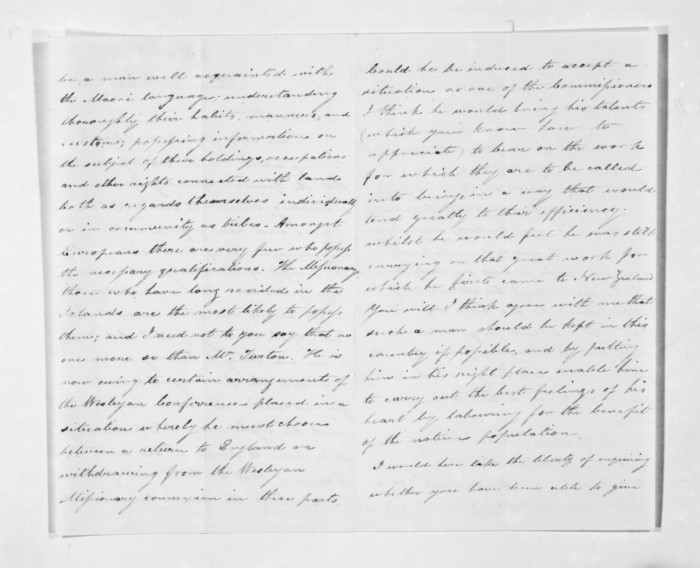 be a man well acquainted with
the Maori language; understanding
thoroughly their habits, manners, and
customs; possessing information on
the subject of their holdings, occupations
and other rights connected with lands
both as regards themselves individually
or in community as tribes. Amongst
Europeans there are very few who possess
the necessary qualifications. The Missionary
those who have long resided in the
Islands are the most likely to possess
them; and I need not to you say that no
one more so than Mr. Turton. He is
now owing to certain arrangements of
the Wesleyan Conference placed in a
situation whereby he must choose
between a return to England or
withdrawing from the Wesleyan
Missionary connexion in these parts.
Could he be induced to accept a
situation as one of the Commissioners
I think he would bring his talents
(which you know how to
appreciate) to bear on the work
for which they are to be called
into being, in a way that would
tend greatly to their efficiency.
whilst he would feel he was still
carrying on that great work for
which he first came to New Zealand
You will I think agree with me that
such a man should be kept in this
country if possible, and by putting
him in his right place enable him
to carry out the best feelings of his
heart by labouring for the benefit
of the native population.
I would here take the liberty of enquiring
whether you have been able to give